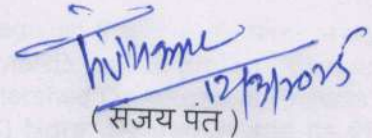 12/3/2025
(संजय पंत)